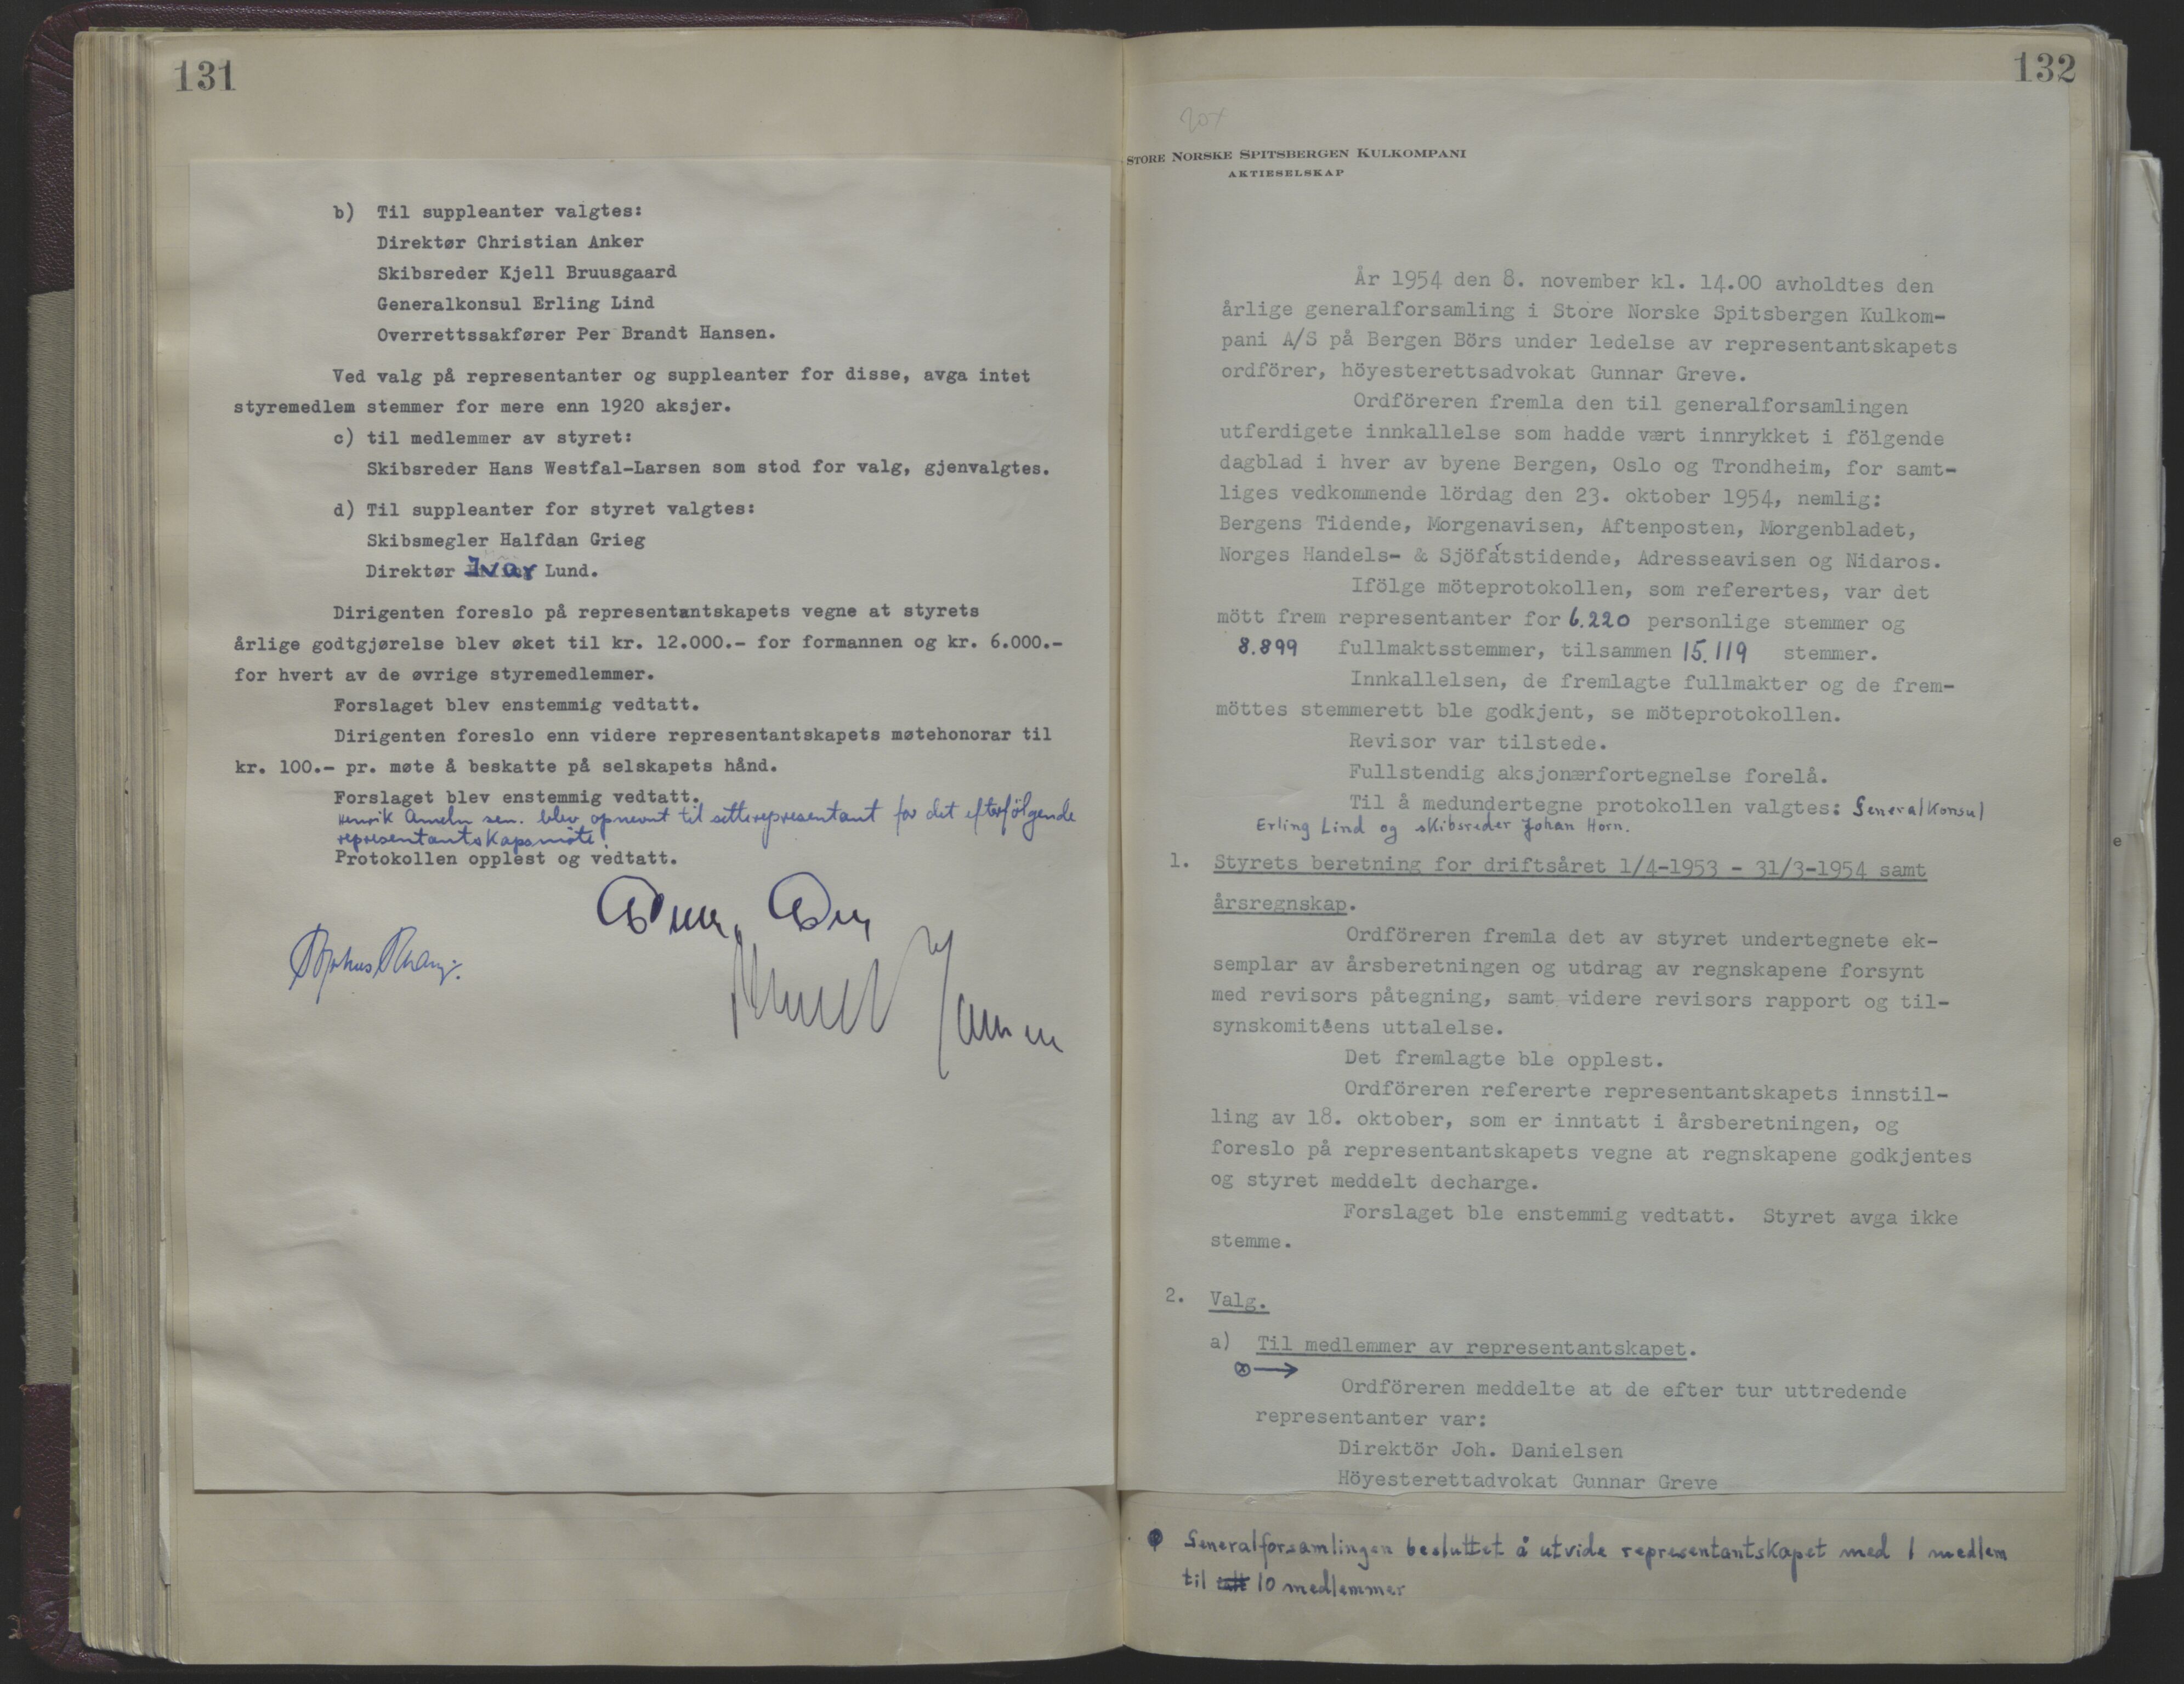 131
b) Til suppleanter valgtes:
Direktør Christian Anker
Skibsreder Kjell Bruusgaard
Generalkonsul Erling Lind
Overrettssakfører Per Brandt Hansen.
Ved valg på representanter og suppleanter for disse, avga intet
styremedlem stemmer for mere enn 1920 aksjer.
c) til medlemmer av styret:
Skibsreder Hans Westfal-Larsen som stod for valg, gjenvalgtes.
d) Til suppleanter for styret valgtes:
Skibsmegler Halfdan Grieg
Direktør Ivar Lund.
Dirigenten foreslo på representantskapets vegne at styrets
årlige godtgjørelse blev øket til kr. 12.000.- for formannen og kr. 6.000.-
for hvert av de øvrige styremedlemmer.
Forslaget blev enstemmig vedtatt.
Dirigenten foreslo enn videre representantskapets møtehonorar til
kr. 100.- pr. møte å beskatte på selskapets hånd.
Forslaget blev enstemmig vedtatt.
Henrik Ameln sen. blev opnevnt til setterepresentant for det efterfölgende
representantskapsmöte.
Protokollen opplest og vedtatt.
132
20+
STORE NORSKE SPITSBERGEN KULKOMPANI
AKTIESELSKAP
År 1954 den 8. november kl. 14.00 avholdtes den
årlige generalforsamling i Store Norske Spitsbergen Kulkom-
pani A/S på Bergen Börs under ledelse av representantskapets
ordförer, höyesterettsadvokat Gunnar Greve.
Ordföreren fremla den til generalforsamlingen
utferdigete innkallelse som hadde vært innrykket i fölgende
dagblad i hver av byene Bergen, Oslo og Trondheim, for samt-
liges vedkommende lördag den 23. oktober 1954, nemlig:
Bergens Tidende, Morgenavisen, Aftenposten, Morgenbladet,
Norges Handels- & Sjöfartstidende, Adresseavisen og Nidaros.
Ifölge möteprotokollen, som referertes, var det
mött frem representanter for 6.220 personlige stemmer og
8.899 fullmaktsstemmer, tilsammen 15.119 stemmer.
Innkallelsen, de fremlagte fullmakter og de frem-
möttes stemmerett ble godkjent, se möteprotokollen.
Revisor var tilstede.
Fullstendig aksjonærfortegnelse forelå.
Til å medundertegne protokollen valgtes: Generalkonsul
Erling Lind og skibsreder Johan Horn.
1. Styrets beretning for driftsåret 1/4-1953 - 31/3-1954 samt
årsregnskap.
Ordföreren fremla det av styret undertegnete ek-
semplar av årsberetningen og utdrag av regnskapene forsynt
med revisors påtegning, samt videre revisors rapport og til-
synskomitéens uttalelse.
Det fremlagte ble opplest.
Ordföreren refererte representantskapets innstil-
ling av 18. oktober, som er inntatt i årsberetningen, og
foreslo på representantskapets vegne at regnskapene godkjentes
og styret meddelt decharge.
Forslaget ble enstemmig vedtatt. Styret avga ikke
stemme.
2. Valg.
a) Til medlemmer av representantskapet.
Ordföreren meddelte at de efter tur uttredende
representanter var:
Direktör Joh. Danielsen
Höyesterettadvokat Gunnar Greve
Generalforsamlingen besluttet å utvide representantskapet med 1 medlem
til 10 medlemmer